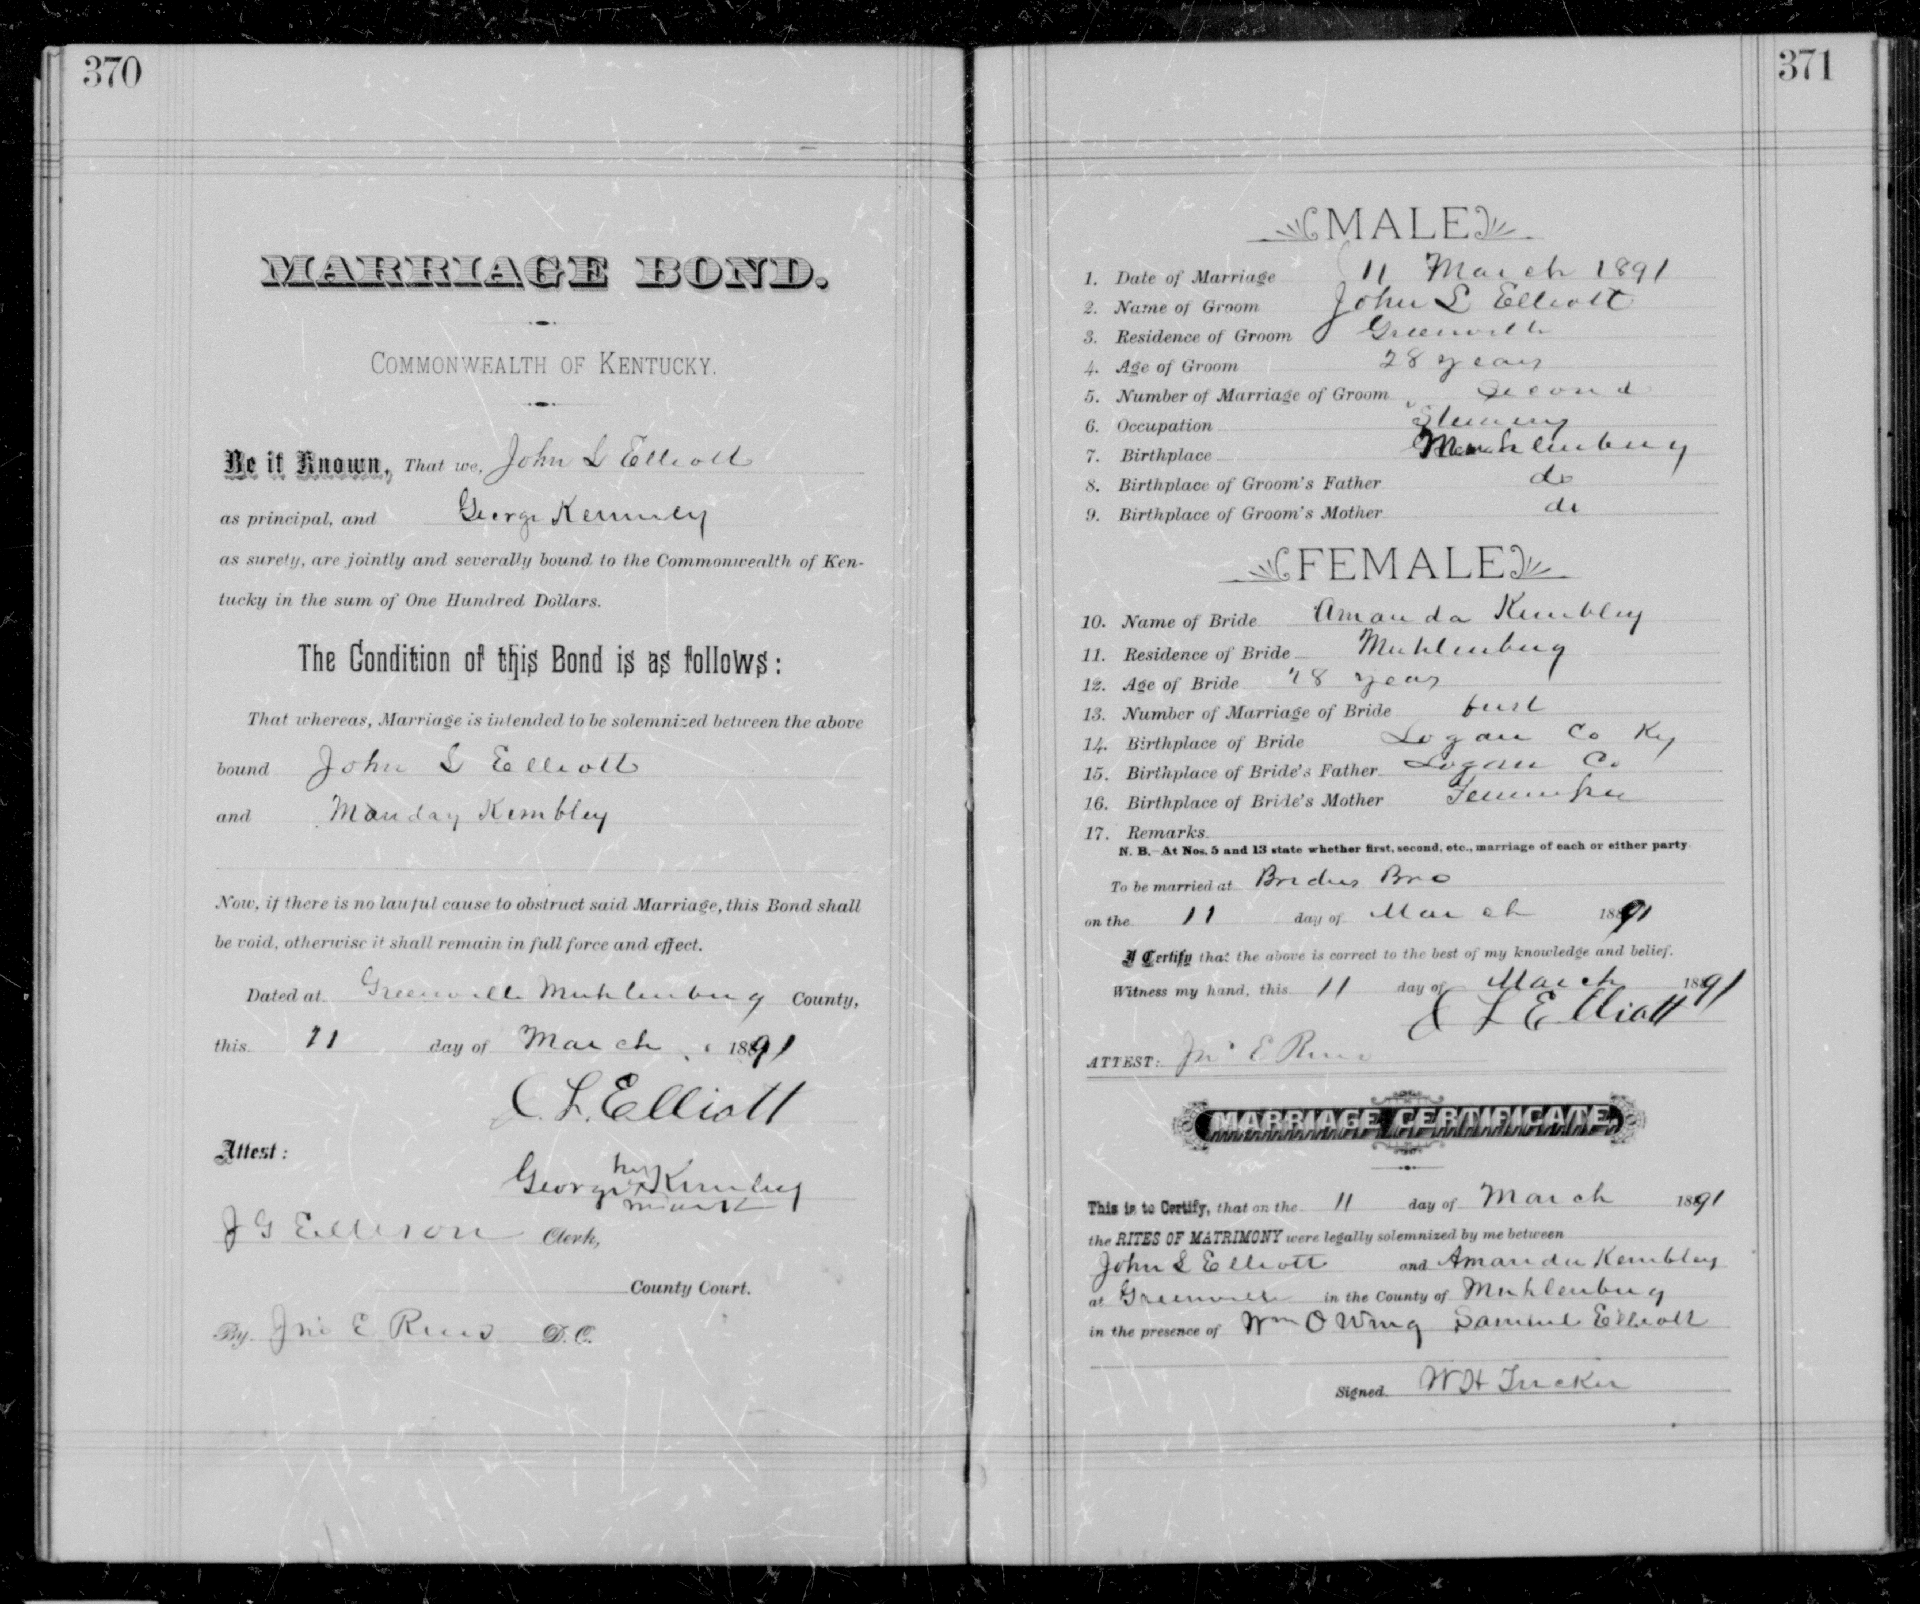 370
MARRIAGE BOND.
COMMONWEALTH OF KENTUCKY.
Be it Known, That we, John L Elliott
as principal, and George Kemmely
as surety, are jointly and severally bound to the Commonwealth of Ken-
tucky in the sum of One Hundred Dollars.
The Condition of this Bond is as follows:
That whereas, Marriage is intended to be solemnized between the above
bound John L Elliott
and Manday Kembley
Now, if there is no lawful cause to obstruct said Marriage, this Bond shall
be void, otherwise it shall remain in full force and effect.
Dated at Greenville Muhlenburg County,
this 11 day of March 1891
J. L. Elliott
Attest:
George his x mark
J G Ellison Clerk,
County Court.
By Jno E Reno D. C.
371
MALE
1. Date of Marriage 11 March 1891
2. Name of Groom John L Elliott
3. Residence of Groom Greenville
4. Age of Groom 28 years
5. Number of Marriage of Groom Second
6. Occupation
7. Birthplace Muhlenburg
8. Birthplace of Groom's Father do
9. Birthplace of Groom's Mother do
FEMALE
10. Name of Bride Amanda Kembley
11. Residence of Bride Muhlenburg
12. Age of Bride 28 years
13. Number of Marriage of Bride first
14. Birthplace of Bride Logan Co Ky
15. Birthplace of Bride's Father Logan Co
16. Birthplace of Bride's Mother Tennessee
17. Remarks
N. B.—At Nos. 5 and 13 state whether first, second, etc., marriage of each or either party
To be married at Brides Bro
on the 11 day of March 1891
I Certify that the above is correct to the best of my knowledge and belief.
Witness my hand, this 11 day of March 1891
J L Elliott
ATTEST: Jno E Reno
MARRIAGE CERTIFICATE.
This is to Certify, that on the 11 day of March 1891
the RITES OF MATRIMONY were legally solemnized by me between
John L Elliott and Amanda Kembley
at Greenville in the County of Muhlenburg
in the presence of Wm O Wing Samuel Elliott
Signed W H Tucker